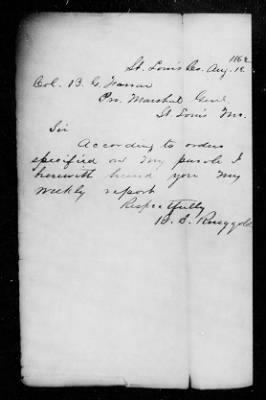 St. Louis Co. Aug. 18 1862
Col. B. G. Farrar
Pro. Marshal Genl
St. Louis Mo.
Sir
According to orders
specified on my parole I
herewith hand you my
weekly report
Respectfully
B. S. Ringgold